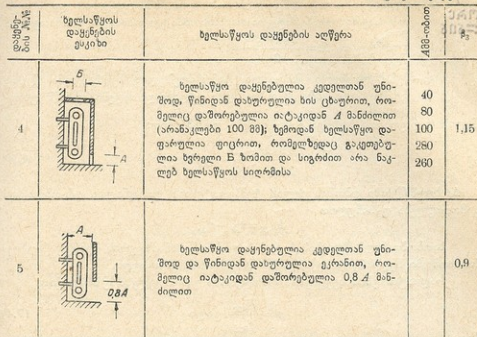 დაყენე-
ბის №№
ხელსაწყოს
დაყენების
ესკიზი
ხელსაწყოს დაყენების აღწერა
A მმ-ობით
β₃
4
Б
A
ხელსაწყო დაყენებულია კედელთან უნი-
შოდ, წინიდან დახურულია ხის ცხაურით, რო-
მელიც დაშორებულია იატაკიდან A მანძილით
(არანაკლები 100 მმ); ზემოდან ხელსაწყო და-
ფარულია ფიცრით, რომელზედაც გაკეთებუ-
ლია ხვრელი Б ზომით და სიგრძით არა ნაკ-
ლებ ხელსაწყოს სიღრმისა
40
80
100
280
260
1,15
5
A
0,8A
ხელსაწყო დაყენებულია კედელთან უნი-
შოდ და წინიდან დახურულია ეკრანით, რო-
მელიც იატაკიდან დაშორებულია 0,8 A მან-
ძილით
0,9